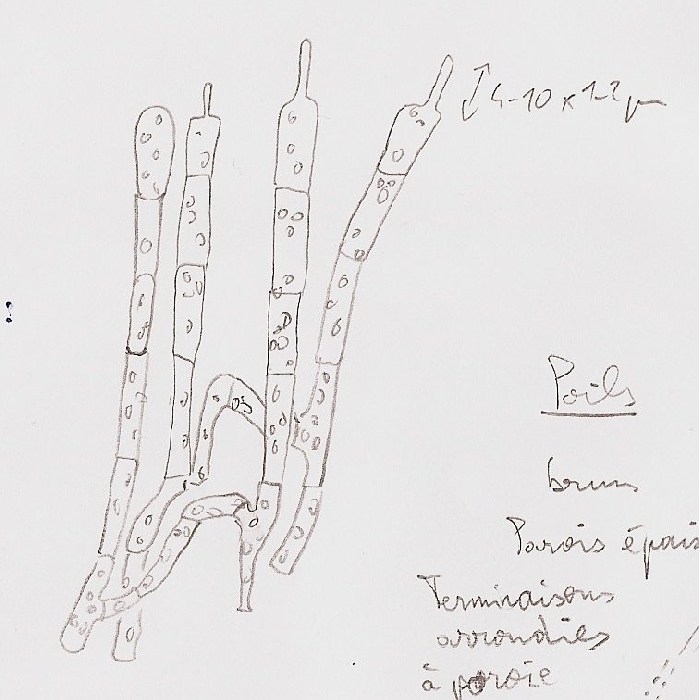 4-10 x 1-2 µm
Poils
bruns
Parois épais
Terminaisons
arrondies
à paroie